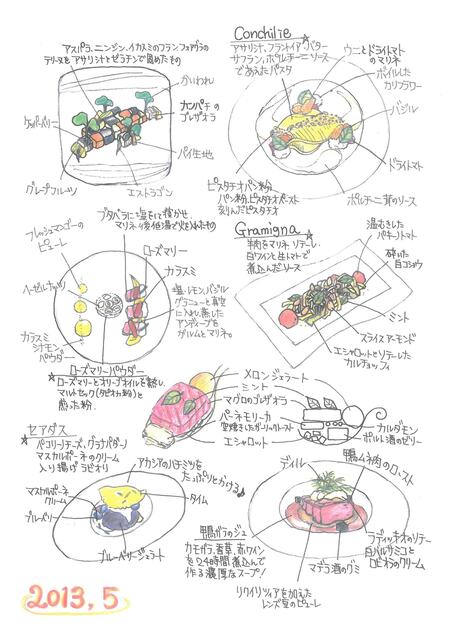 アスパラ、ニンジン、イカスミのフラン、フォアグラの
テリーヌをアサリジュとゼラチンで固めたもの
かいわれ
カンパチの
ブレザオラ
ケッパーベリー
パイ生地
グレープフルーツ
エストラゴン
Conchilie
アサリジュ、ブランドイア、バター
サフラン、ポルチーニソース
であえたパスタ
ウニとドライトマト
のマリネ
ボイルした
カリフラワー
バジル
ドライトマト
ポルチーニ茸のソース
ピスタチオパン粉
パン粉、ピスタチオペースト
刻んだピスタチオ
ブタバラに塩をして寝かせ、
マリネ後低温で火を入れたもの
フレッシュマンゴーの
ピューレ
ローズマリー
カラスミ
ヘーゼルナッツ
塩、レモン、バジル
グラニューと真空
に入れ、蒸した
アンディーブを
ヴィルムとマリネ。
カラスミ
シナモン
パウダー
Gramigna
羊肉をマリネ、リテーし、
白ワインと生トマトで
煮込んだソース
温めもどした
パキーノトマト
砕いた
白コショウ
ミント
スライスアーモンド
エシャロットとソテーした
カルチョッフィ
ローズマリーパウダー
ローズマリーとオリーブオイルを熱し、
マルトセック(タピオカ粉)と
煎った粉.
メロンジェラート
ミント
マグロのブレザオラ
ペーネモリーカ
空焼きしたガーリックトースト
エシャロット
カルダモン
ポルト酒のゼリー
セアダス
ペコリーノチーズ、グラナパダーノ
マスカルポーネのクリーム
入り揚げラビオリ
アカシアのハチミツを
たっぷりとかける♪
マスカルポーネ
クリーム
タイム
ブルーベリー
ブルーベリージェラート
鴨ガラのジュ
カモガラ、香草、赤ワイン
を24時間煮込んで
作る濃厚なスープ!
ディル
鴨ムネ肉のロースト
ラディッキオのソテー
白バルサミコと
ロビオラのクリーム
マデラ酒のグミ
リクイリツィアを加えた
レンズ豆のピューレ
2013, 5